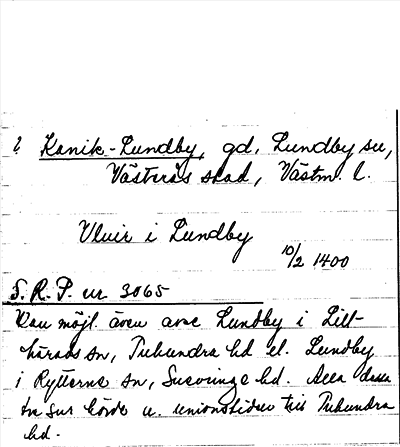 ? Kanik-Lundby, gd, Lundby sn,
Västerås stad, Västm. l.
Vluir i Lundby
10/2 1400
S.R.P. nr 3065
Kan möjl. även avse Lundby i Lill-
härads sn, Tuhundra hd el. Lundby
i Rytterne sn, Snevringe hd. Alla dessa
sn:ar hörde u. unionstiden till Tuhundra
hd.